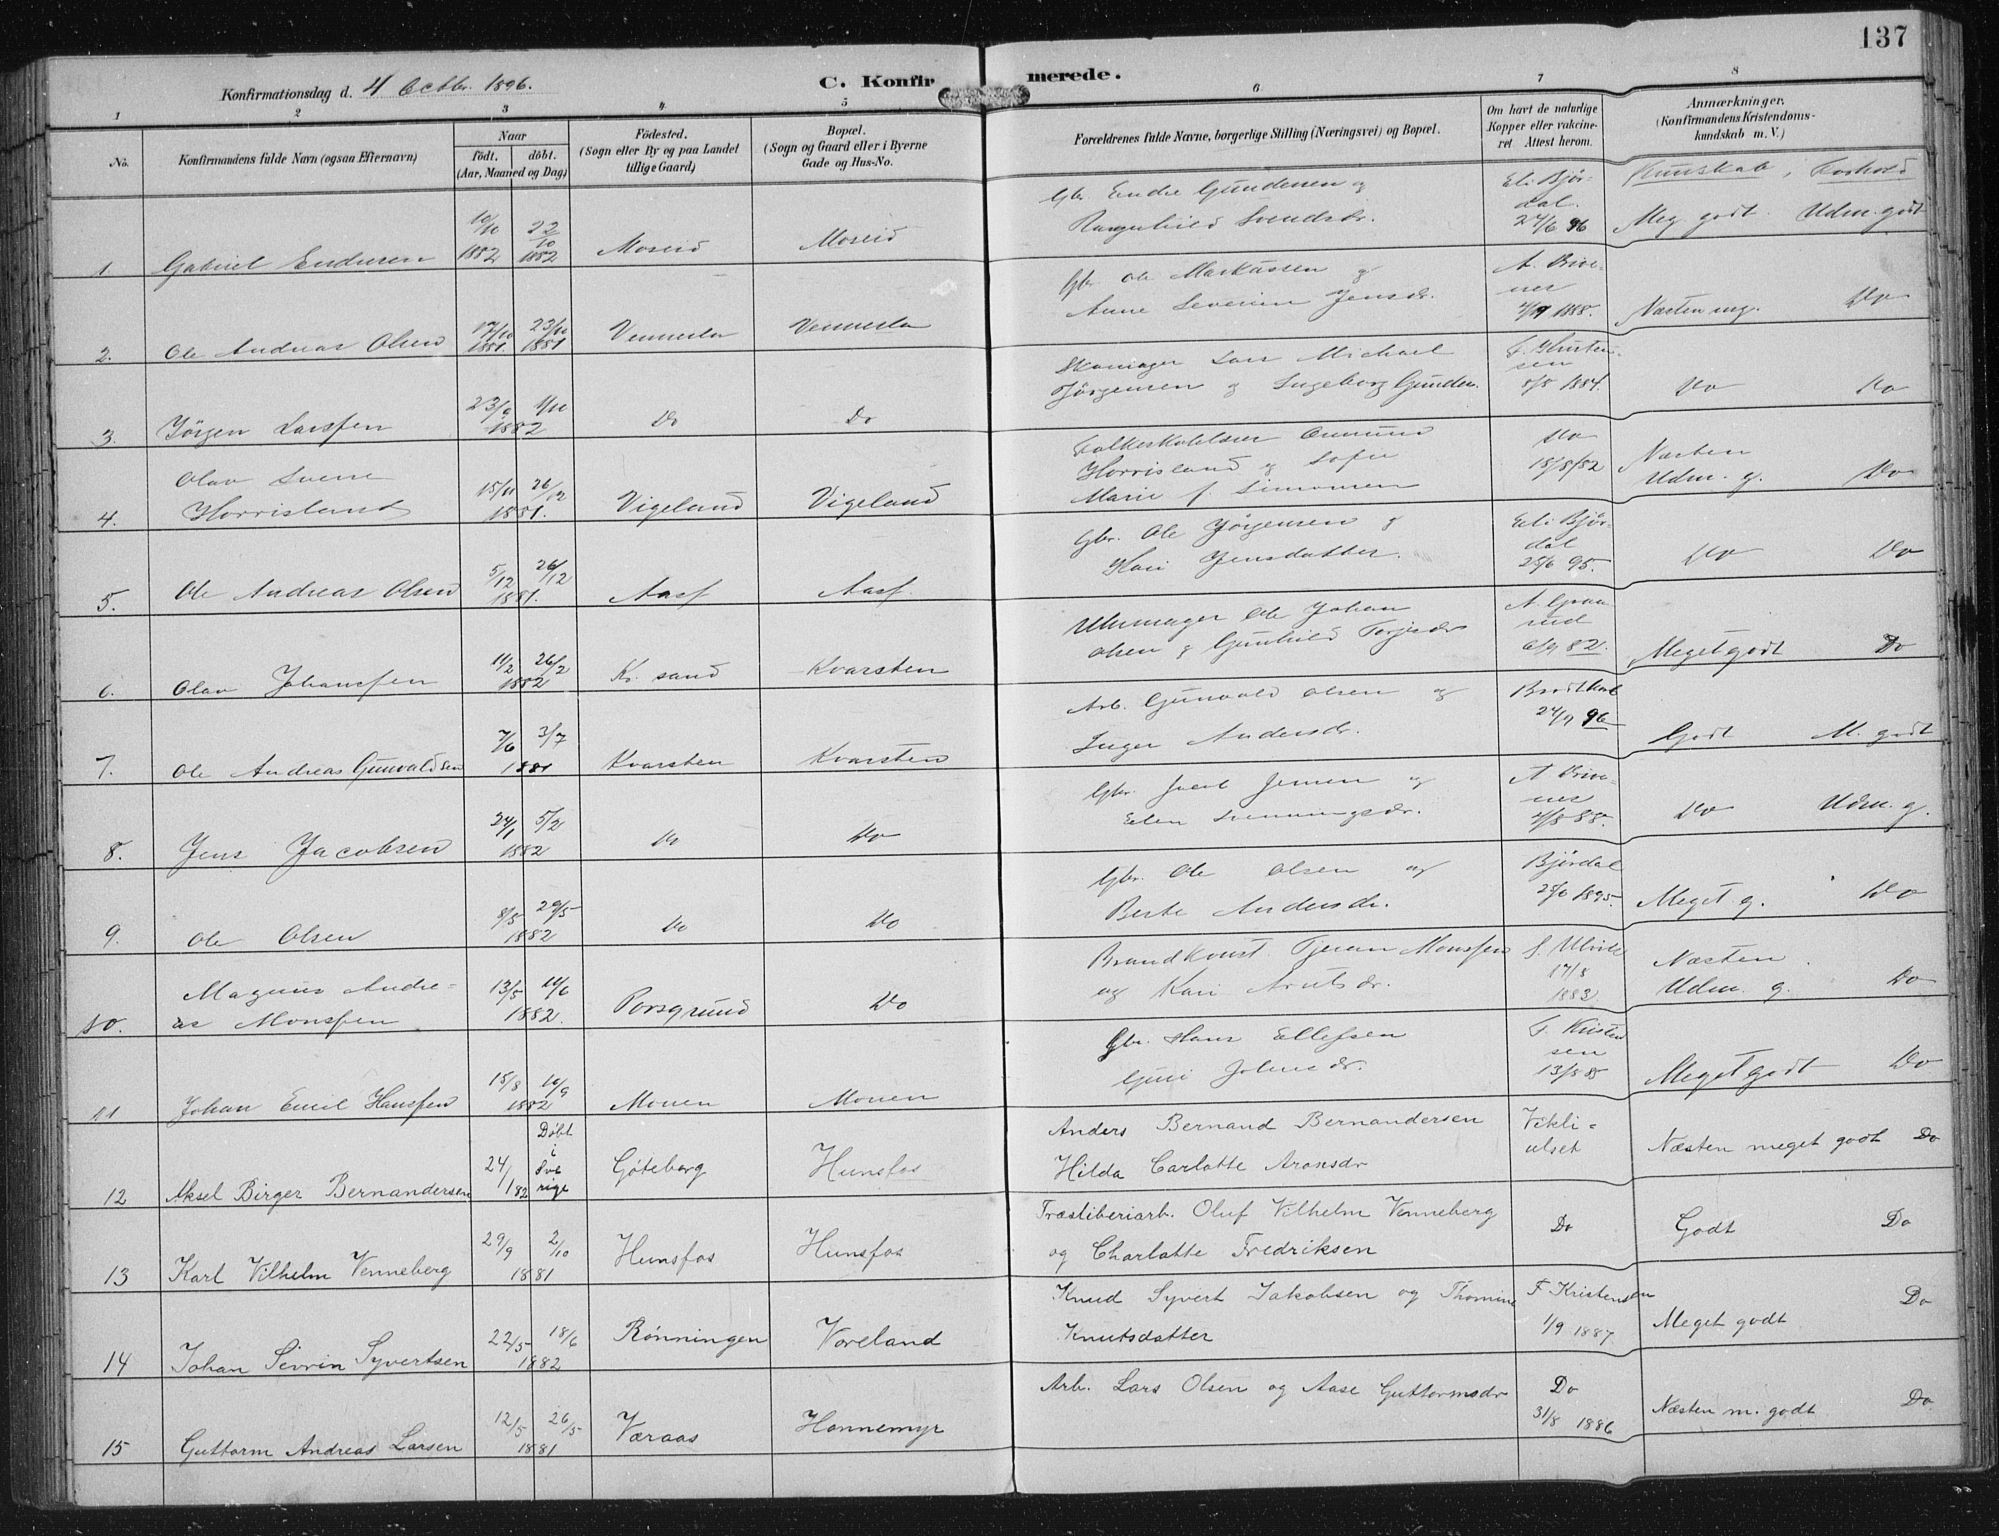 137
Konfirmationsdag d. 4 Octbr. 1896.
C. Konfirmerede.
1 2 3 4 5 6 7 8
No.
Konfirmandens fulde Navn (ogsaa Efternavn)
Naar
födt. döbt.
(Aar, Maaned og Dag)
Födested.
(Sogn eller By og paa Landet
tillige Gaard)
Bopæl.
(Sogn og Gaard eller i Byerne
Gade og Hus-No.
Forældrenes fulde Navne, borgerlige Stilling (Næringsvei) og Bopæl.
Om havt de naturlige
Kopper eller vakcine-
ret Attest herom.
Anmærkninger.
(Konfirmandens Kristendoms-
kundskab m. V.)
Kunskab, Forhold
1. Gabriel Endresen 10/10 1882 22/10 1882 Moseid Moseid
Gbr. Endre Gundersen og
Ragnhild Svendsdr.
Eli Bjør-
dal.
24/6 96
Meg. godt. Udm. godt
2. Ole Andreas Olsen 17/10 1881 23/10 1881 Vennesla Vennesla
Gbr. Ole Markussen og
Anne Severine Jensdr.
A. Drive-
nes
1888.
Næsten mg. Do
3. Jörgen Larssen 23/9 1/10 1882 Do Do
Skomager Lars Michael
Jörgensen og Ingeborg Gunders.
1884.
Do Do
4. Olav Sverre
Horrisland 15/11 26/12 1881. Vigeland Vigeland
Folkeskolelærer Omund
Horrisland og Sofie
Marie f. Simonsen
Do
18/8/82
Næsten
Udm. g. Do
5. Ole Andreas Olsen 5/12 26/12 1881. Aas Aas
Gbr. Ole Jörgensen og
Kari Jensdatter.
Eli Bjør-
dal
25/6 95.
Do Do
6. Olav Johanssen 11/2 26/2 1882 Kr. sand Kvarsten
Uhrmager Ole Johan
Olsen og Gunhild Torjusdr
6/9 82.
Meget godt Do
7. Ole Andreas Gunvaldsen 7/6 3/7 1881 Kvarsten Kvarsten
Arb. Gunvald Olsen og
Inger Andersdr.
24/9 96
Godt M. godt
8. Jens Jacobsen 24/1 5/2 1882 Do Do
Gbr. Jensen og
Elen Svenningsdr.
A Drive-
nes
88.
Do Udm. g.
9. Ole Olsen 8/5 29/5 1882 Do Do
Gbr. Ole Olsen og
Berte Andersdr.
Bjørdal
25/6 1895.
Meget g. Do
10. Magnus Andre-
as Monssen 13/5 1882. Porsgrund Do
Brandkonst. Monssen
og Kari
17/8
1883
Næsten
Udm. g. Do
11 Johan Emil Hanssen 15/8 10/9 1882 Moven Moven
Gbr. Hans Ellefsen
Guri
F. Kristen
sen
13/8 85
Meget godt Do
12 Aksel Birger Bernandersen 24/1 82 Döbt
i
Sve
rige Göteborg Hunsfos
Anders Bernand Bernandersen
Hilda Carlotte Aronsdr
Vekli-
ulset
Næsten meget godt Do
13 Karl Vilhelm Venneberg 29/9 2/10 1881 Hunsfos Hunsfos
Træsliberiarb. Oluf Vilhelm Venneberg
og Charlotte Fredriksen
Do
Godt Do
14 Johan Sivrin Syvertsen 22/5 18/6 1882 Rönningen Voreland
Knud Syvert Jakobsen og Thomine
Knutsdatter
F Kristensen
1/9 1887
Meget godt Do
15 Guttorm Andreas Larsen 12/5 26/5 1881 Væraas Honnemyr
Arb. Lars Olsen og Aase Guttormsdr
Do
31/8 1886
Næsten m. godt Do